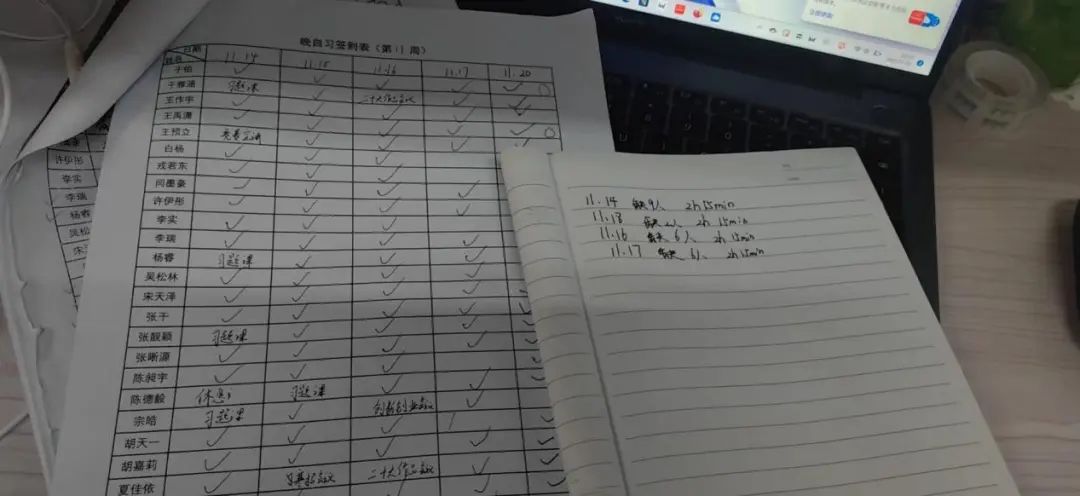 晚自习签到表（第11周）
日期 11.14 11.15 11.16 11.17 11.20
姓名
于伯 ✓ ✓ ✓ ✓ ✓
于雅涵 习题课 ✓ ✓ ✓ ✓
王作宇 ✓ ✓ ✓
王禹潇 ✓ ✓ ✓ ✓
王预立 ✓ ✓ ✓ ✓
白杨 ✓ ✓ ✓
戎君东 ✓ ✓ ✓
闫墨豪 ✓ ✓ ✓ ✓
许伊彤 ✓ ✓ ✓ ✓
李实 ✓ ✓ ✓
李瑞 ✓ ✓ ✓ ✓
杨睿 习题课 ✓ ✓ ✓
吴松林 ✓ ✓ ✓ ✓
宋天泽 ✓ ✓ ✓ ✓
张干 ✓ ✓ ✓ ✓
张靓颖 习题课 ✓ ✓ ✓
张晰源 ✓ ✓ ✓
陈昶宇 ✓ ✓ ✓
陈德毅 休息 习题课 ✓
宗皓 习题课 ✓
胡天一 ✓ ✓ ✓ ✓
胡嘉莉 ✓ ✓ ✓
夏佳依 ✓ ✓
许伊彤
李实
李瑞
杨睿
11.14 缺9人 2h15min
11.18 缺2人 2h 15min
11.16 缺6人 2h 15min
11.17 缺6人 2h 15min